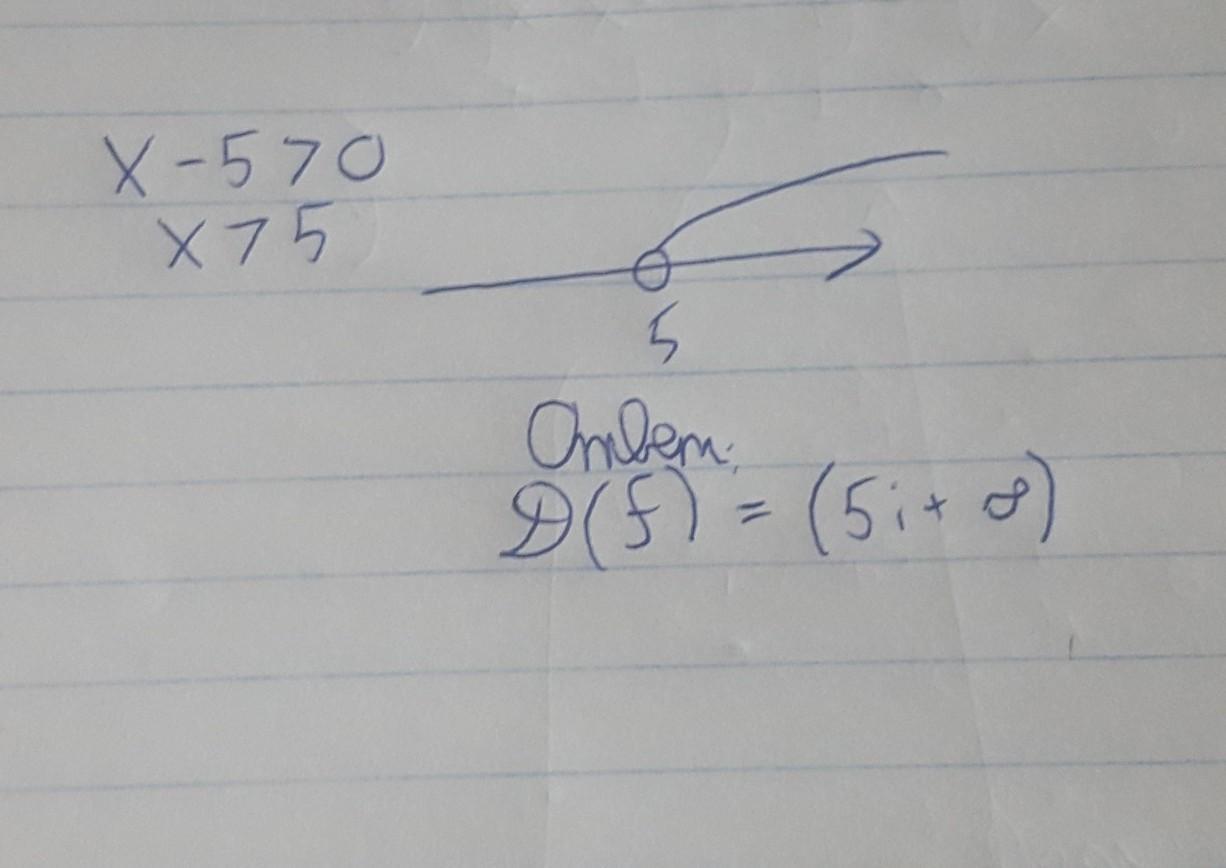 x-5>0
x>5
5
Ответ:
D(f) = (5;+∞)